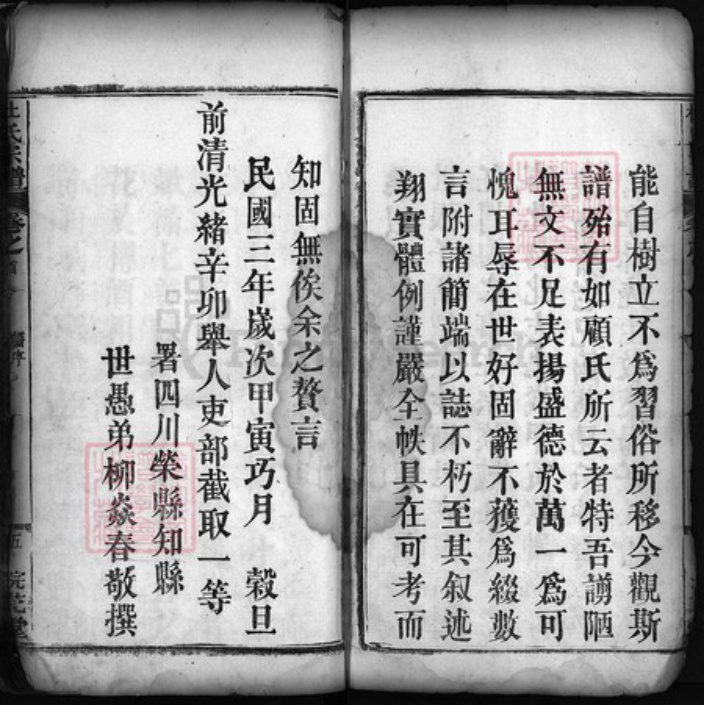 能自樹立不爲習俗所移今觀斯
譜殆有如顧氏所云者特吾謭陋
無文不足表揚盛德於萬一爲可
愧耳辱在世好固辭不獲爲綴數
言附諸簡端以誌不朽至其叙述
翔實體例謹嚴全帙具在可考而
知固無俟余之贅言
民國三年歲次甲寅巧月 穀旦
前清光緒辛卯舉人吏部截取一等
署四川榮縣知縣
世愚弟柳焱春敬撰
杜氏宗譜 卷之首 譜序 五 浣花堂